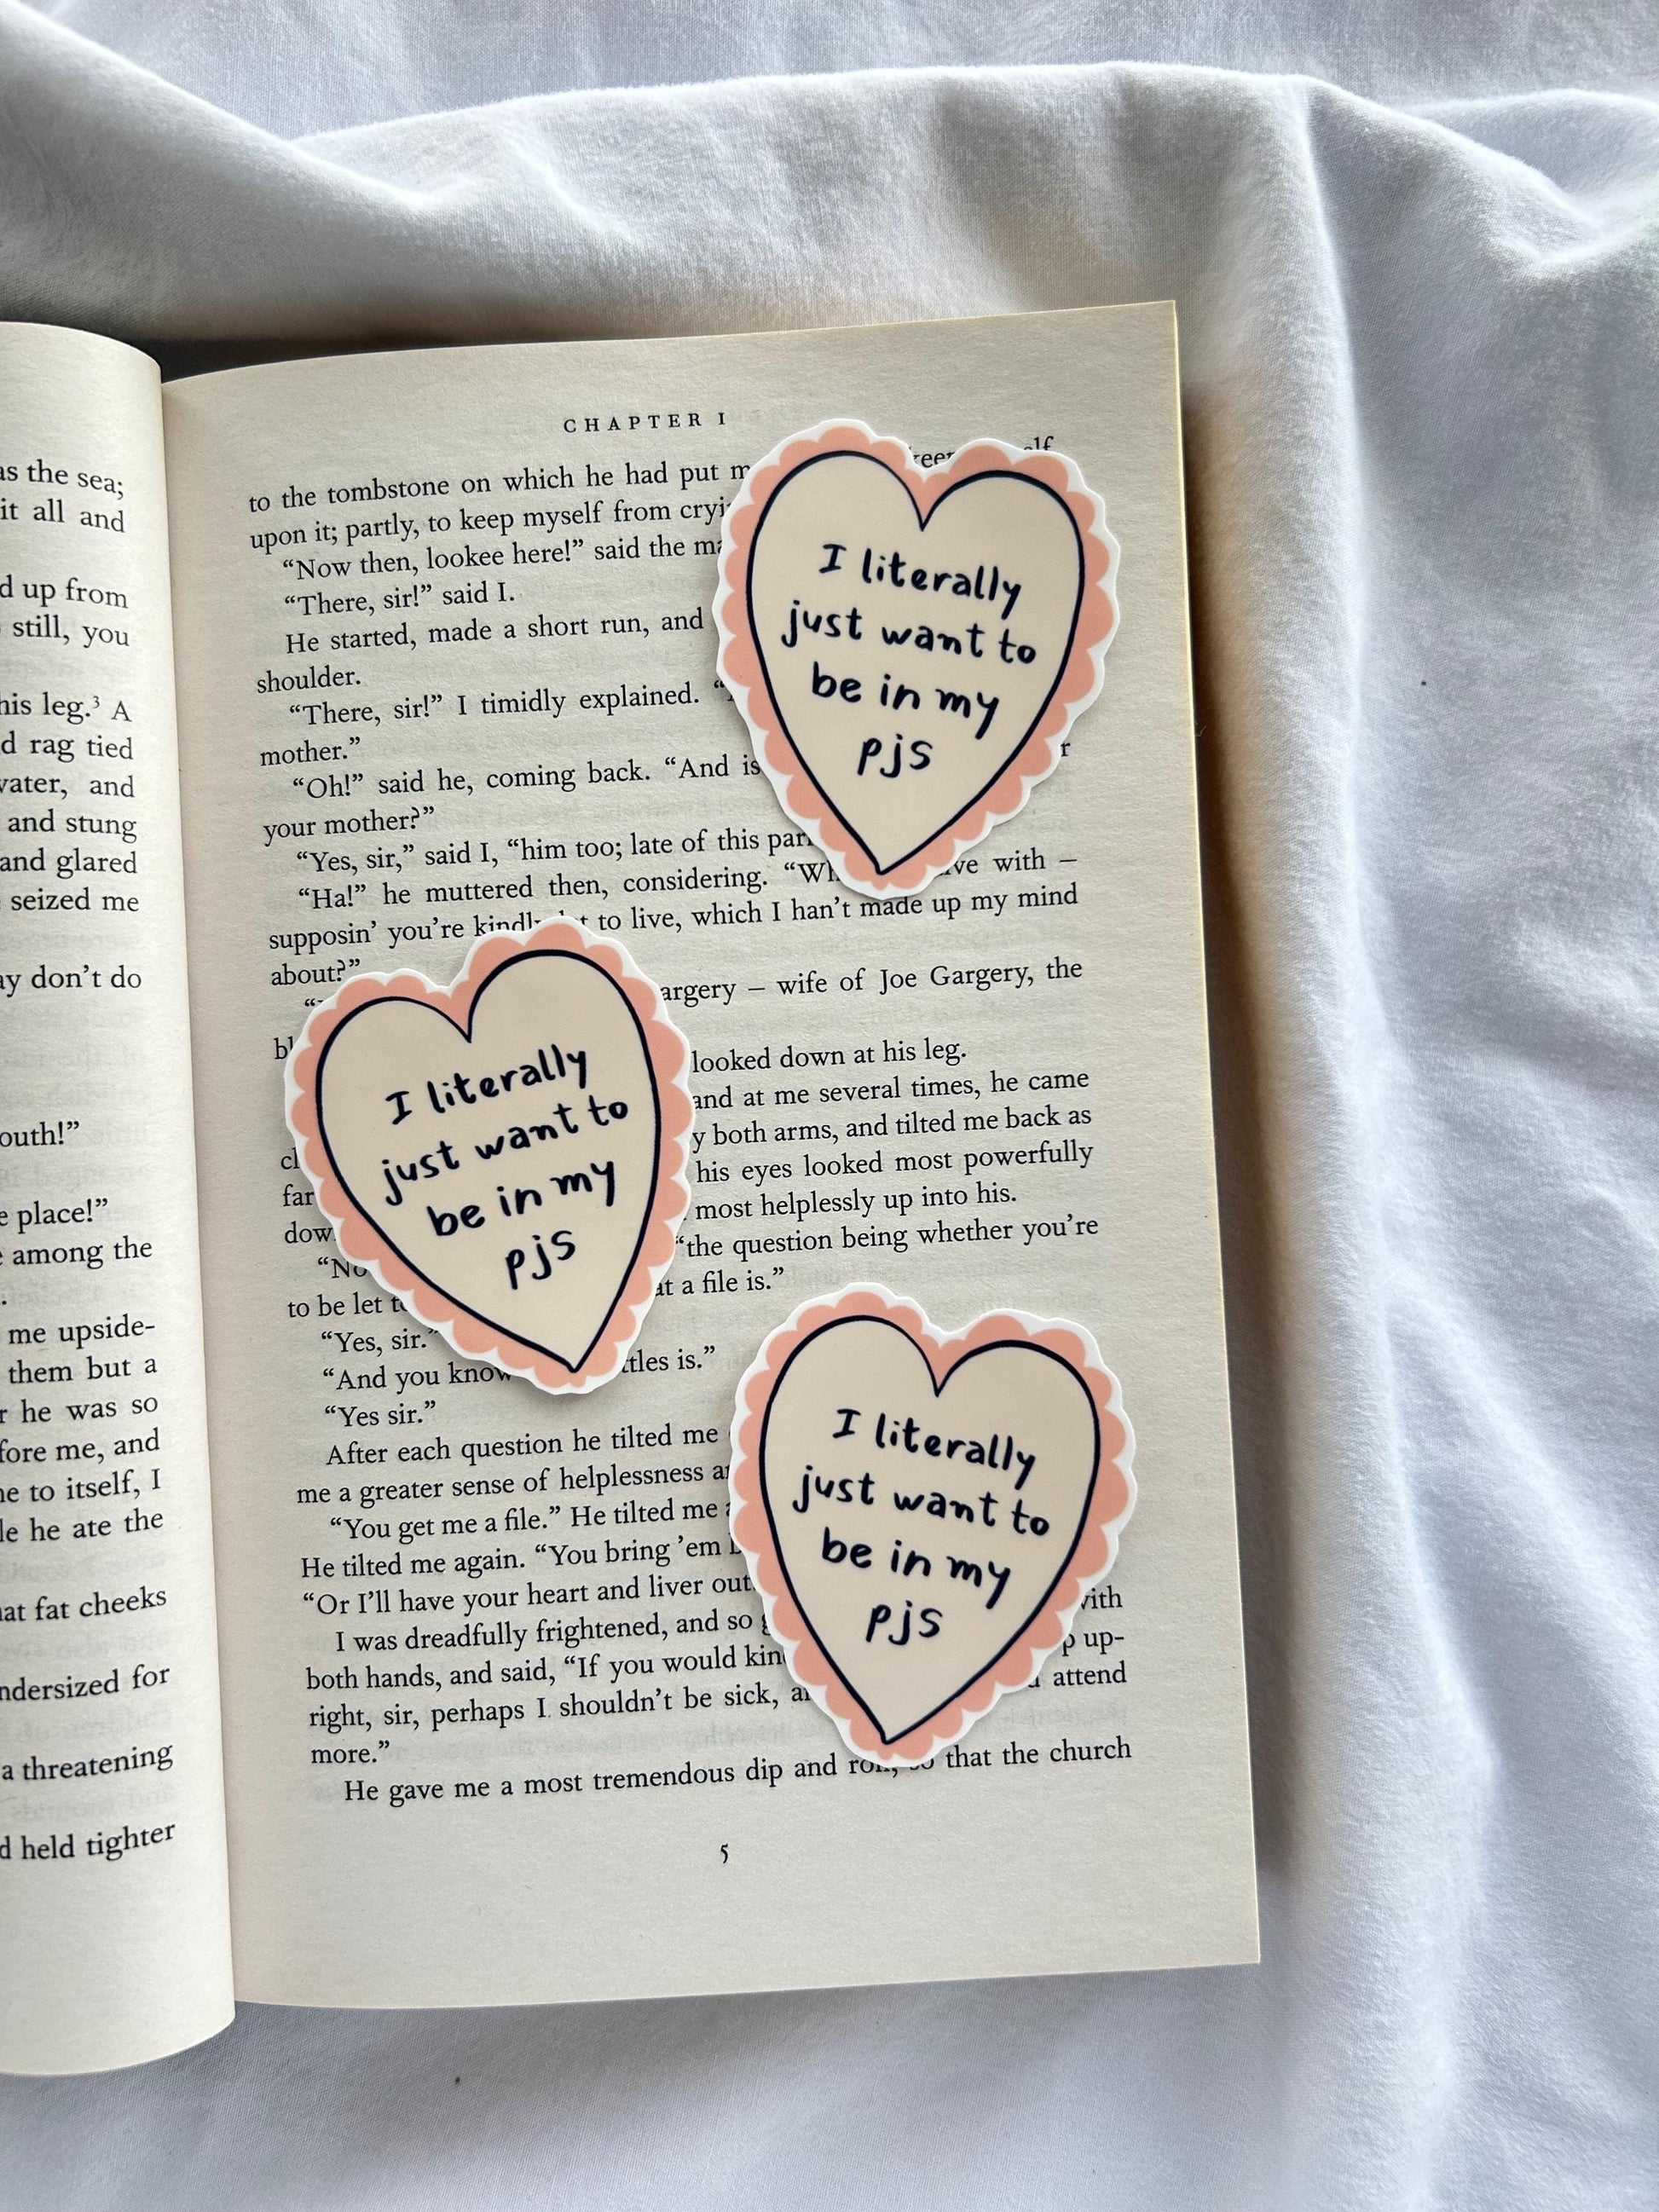 as the sea;
it all and
d up from
still, you
his leg.³ A
d rag tied
vater, and
and stung
and glared
seized me
ay don't do
outh!"
e place!"
among the
me upside-
them but a
r he was so
fore me, and
ne to itself, I
le he ate the
hat fat cheeks
ndersized for
a threatening
d held tighter
CHAPTER I
to the tombstone on which he had put
upon it; partly, to keep myself from
"Now then, lookee here!" said the
"There, sir!" said I.
He started, made a short run, and
shoulder.
"There, sir!" I timidly explained.
mother."
"Oh!" said he, coming back. "And is
your mother?"
"Yes, sir," said I, "him too; late of this
"Ha!" he muttered then, considering. with –
supposin' you're to live, which I han't made up my mind
about?"
argery – wife of Joe Gargery, the
looked down at his leg.
and at me several times, he came
y both arms, and tilted me back as
far his eyes looked most powerfully
most helplessly up into his.
"the question being whether you're
to be let at a file is."
"Yes, sir."
"And you know ttles is."
"Yes sir."
After each question he tilted me
me a greater sense of helplessness
"You get me a file." He tilted me
He tilted me again. "You bring 'em
"Or I'll have your heart and liver out.
I was dreadfully frightened, and so with
both hands, and said, "If you would up-
right, sir, perhaps I shouldn't be sick, attend
more."
He gave me a most tremendous dip and that the church
5
I literally
just want to
be in my
pjs
I literally
just want to
be in my
pjs
I literally
just want to
be in my
pjs